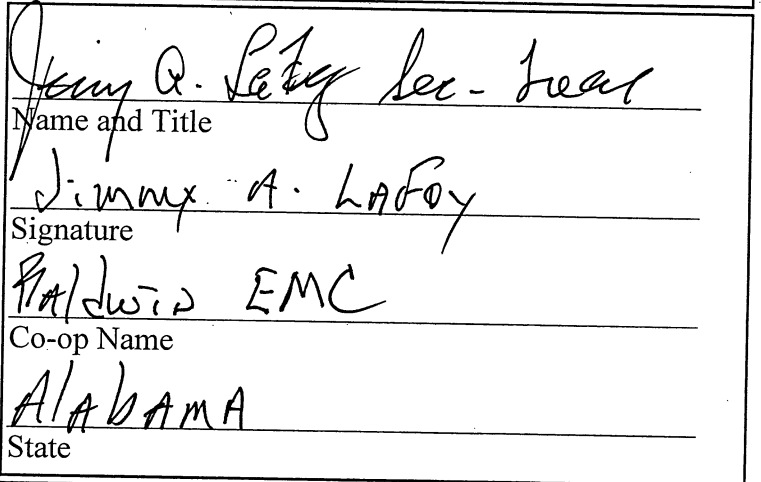 Jimmy A. LaFoy Sec-Treas
Name and Title
Jimmy A. LAFOy
Signature
BAldwin EMC
Co-op Name
AlAbAMA
State